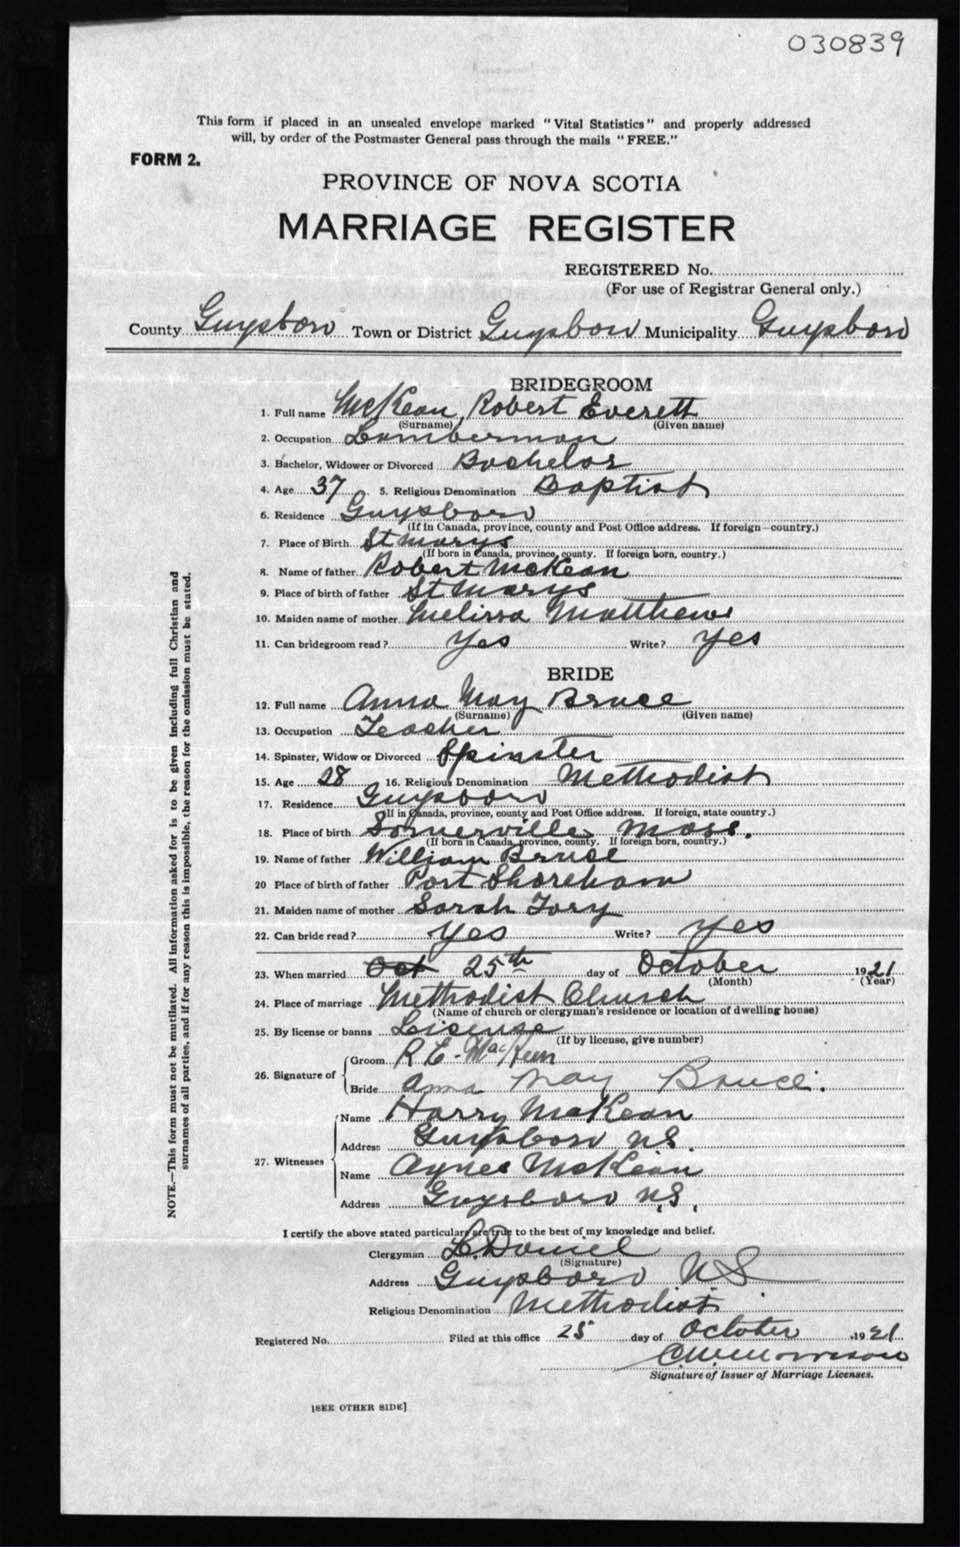 030839
This form if placed in an unsealed envelope marked "Vital Statistics" and properly addressed
will, by order of the Postmaster General pass through the mails "FREE."
FORM 2.
PROVINCE OF NOVA SCOTIA
MARRIAGE REGISTER
REGISTERED No.
(For use of Registrar General only.)
County Guysboro Town or District Guysboro Municipality Guysboro
BRIDEGROOM
1. Full name McKean Robert Everett
(Surname) (Given name)
2. Occupation Lumberman
3. Bachelor, Widower or Divorced Bachelor
4. Age 37 5. Religious Denomination Baptist
6. Residence Guysboro
(If in Canada, province, county and Post Office address. If foreign—country.)
7. Place of Birth St Marys
(If born in Canada, province, county. If foreign born, country.)
8. Name of father Robert McKean
9. Place of birth of father St Marys
10. Maiden name of mother Melissa Matthews
11. Can bridegroom read? Yes Write? Yes
BRIDE
12. Full name Anna May Bruce
(Surname) (Given name)
13. Occupation Teacher
14. Spinster, Widow or Divorced Spinster
15. Age 28 16. Religious Denomination Methodist
17. Residence Guysboro
(If in Canada, province, county and Post Office address. If foreign, state country.)
18. Place of birth Somerville Mass.
(If born in Canada, province, county. If foreign born, country.)
19. Name of father William Bruce
20 Place of birth of father Port Shoreham
21. Maiden name of mother Sarah Tory
22. Can bride read? Yes Write? Yes
23. When married Oct 25th day of October 1921
(Month) (Year)
24. Place of marriage Methodist Church
(Name of church or clergyman's residence or location of dwelling house)
25. By license or banns Lisense
(If by license, give number)
26. Signature of Groom R E. MacKeen
Bride Anna May Bruce.
27. Witnesses Name Harry McKean
Address Guysboro N.S.
Name Agnes McKean
Address Guysboro N.S.
I certify the above stated particulars are true to the best of my knowledge and belief.
Clergyman L. Daniel
(Signature)
Address Guysboro N S
Religious Denomination Methodist
Registered No. Filed at this office 25 day of October 1921
C.W. Morrison
Signature of Issuer of Marriage Licenses.
[SEE OTHER SIDE]
NOTE.—This form must not be mutilated. All information asked for is to be given including full Christian and
surnames of all parties, and if for any reason this is impossible, the reason for the omission must be stated.